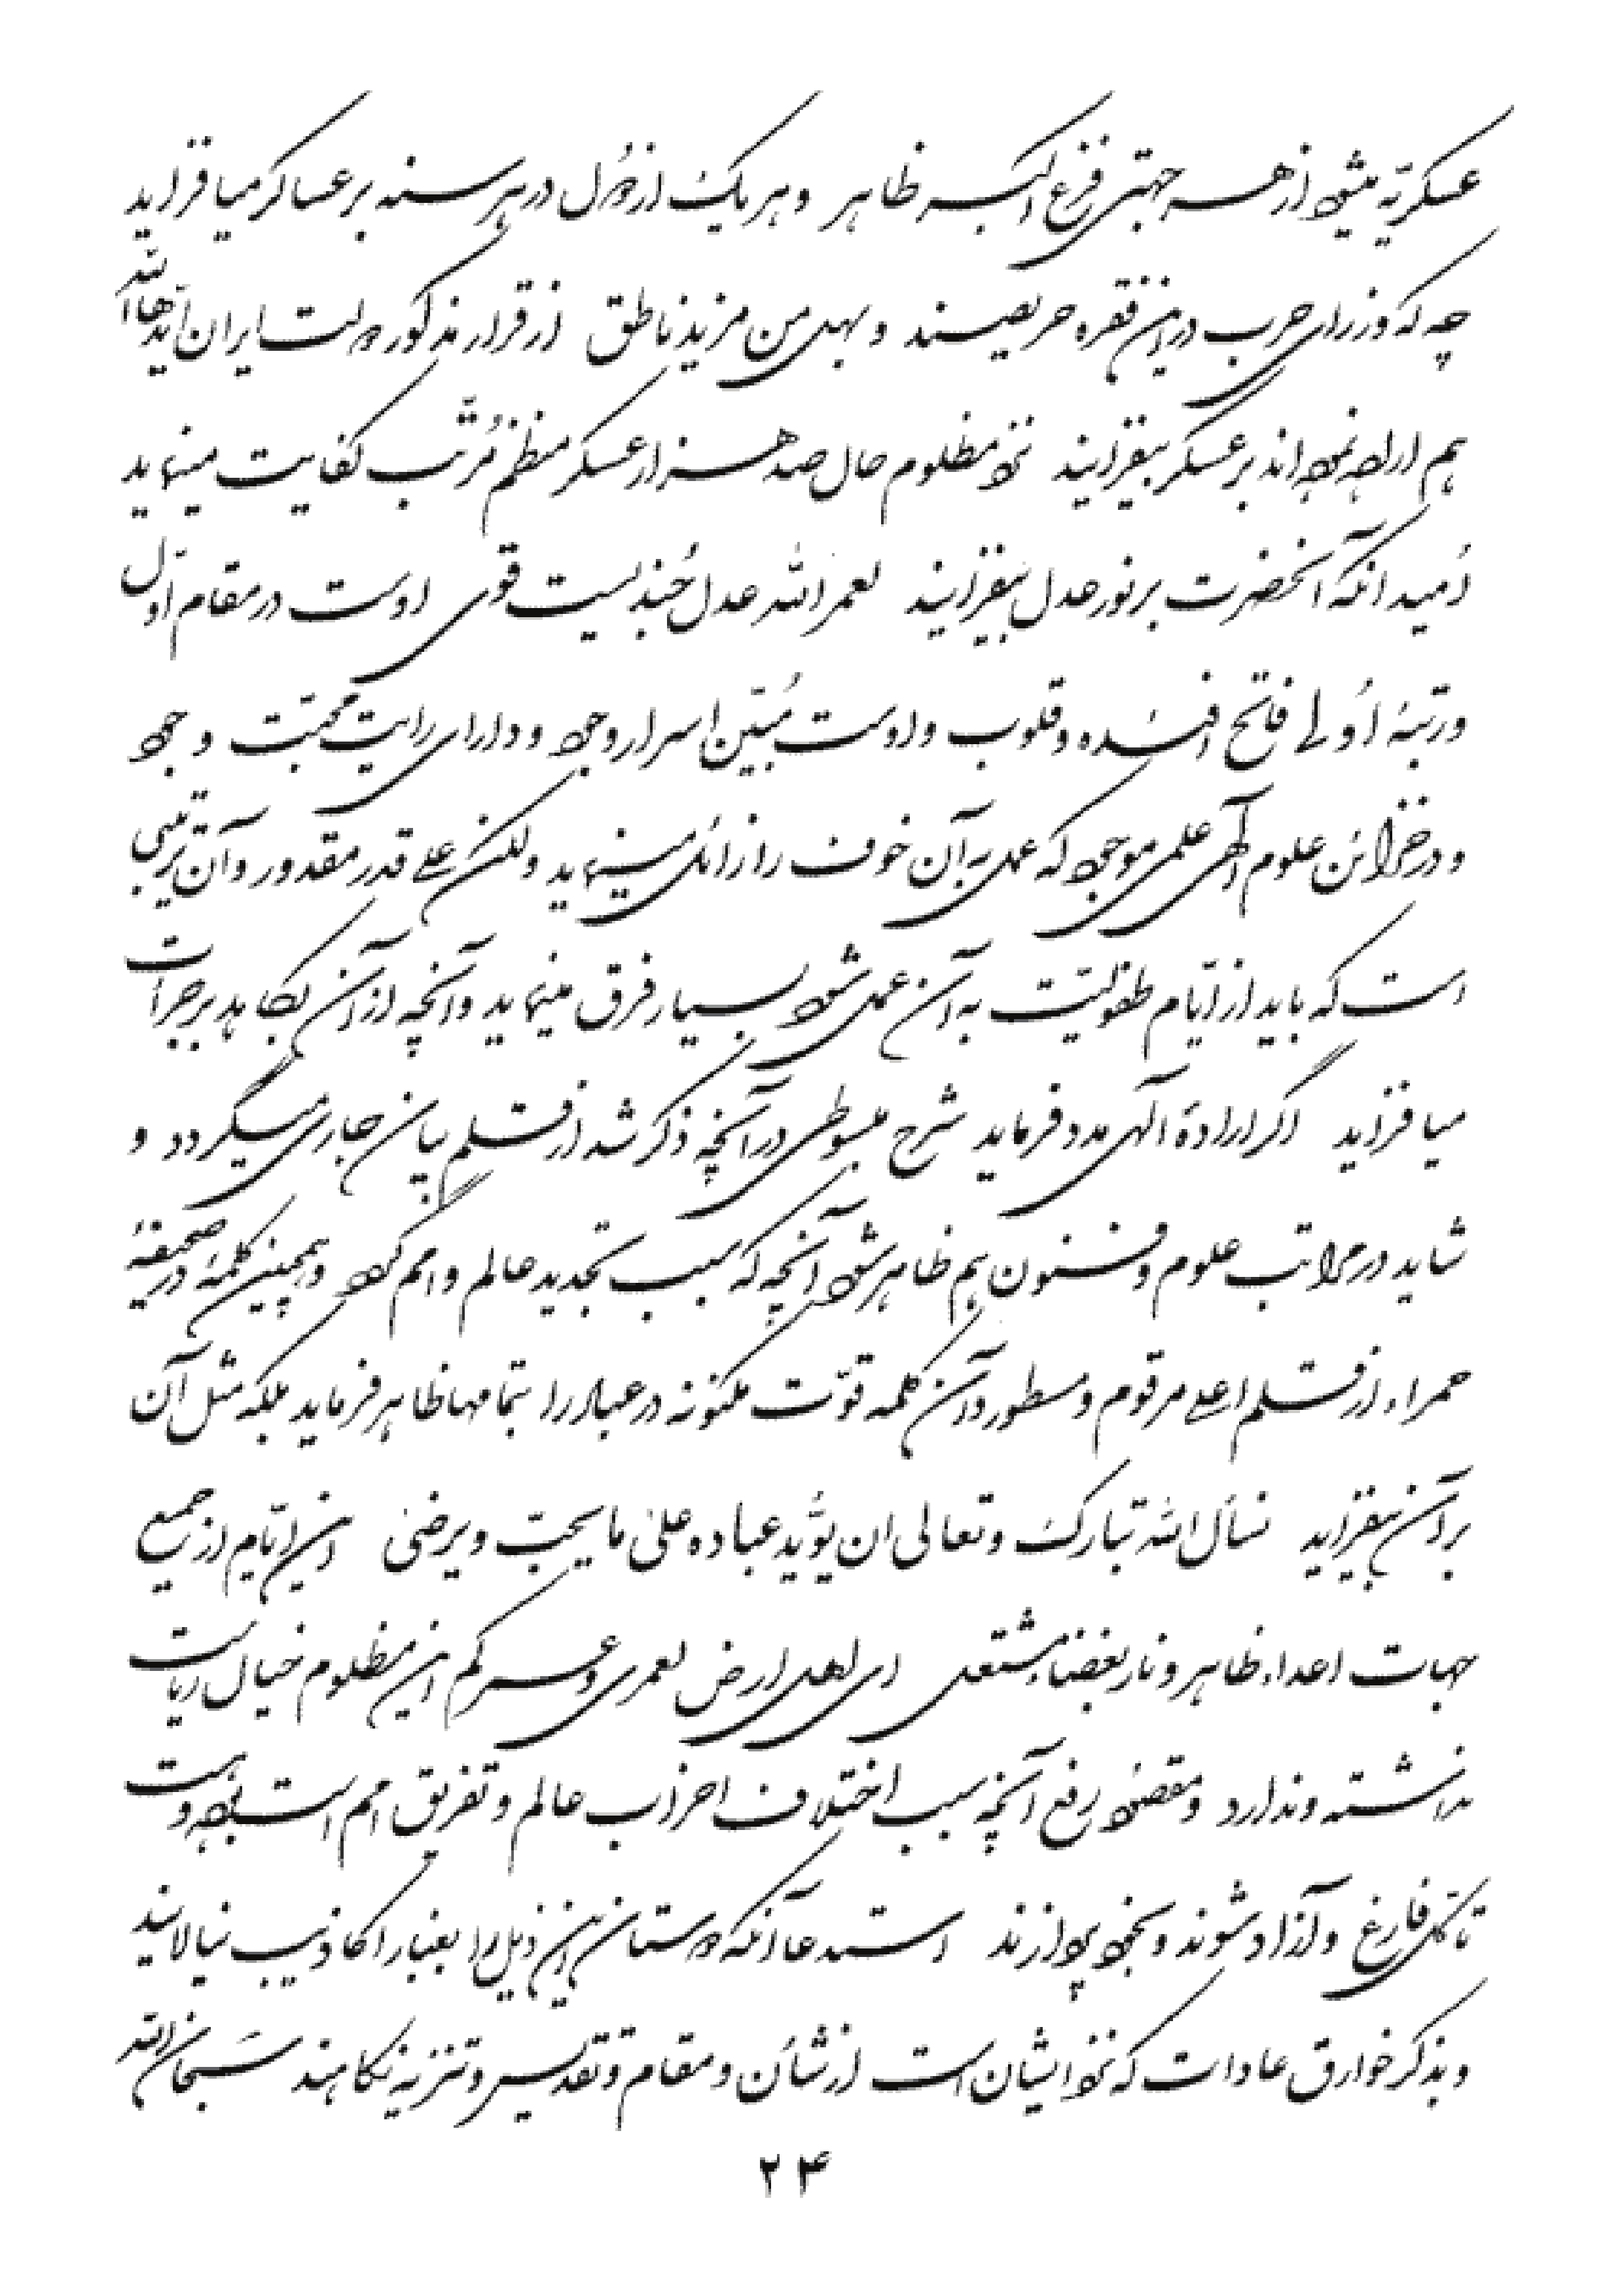 عسکریّه میشود از هر جهتی فزع اکبر ظاهر و هر یک از دول در هر سنه بر عساکر میافزاید
چه که وزرای حرب در این فقره حریصند و بهل من مزید ناطق از قرار مذکور دولت ایران ایّدها الله
هم اراده نموده‌اند بر عسکر بیفزایند نزد مظلوم حال صد هزار عسکر منظم مُرتّب کفایت مینماید
اُمید آنکه آنحضرت بر نور عدل بیفزایند لعمر الله عدل جُندیست قوی اوست در مقام اوّل
و رتبهٔ اُولی فاتح افئده و قلوب و اوست مُبیّن اسرار وجود و دارای رایت محبّت و جود
و در خزائن علوم الٓهی علمی موجود که عمل به آن خوف را زائل مینماید ولکن علی قدر مقدور و آن ترتیبی
است که باید از ایّام طفولیّت به آن عمل شود بسیار فرق مینماید و آنچه از آن بکاهد بر جرأت
میافزاید اگر ارادهٔ الٓهی مدد فرماید شرح مبسوطی در آنچه ذکر شد از قلم بیان جاری میگردد و
شاید در مراتب علوم و فنون هم ظاهر شود آنچه که سبب تجدید عالم و امم گردد و همچنین کلمهٔ در صحیفهٔ
حمراء از قلم اعلی مرقوم و مسطور و آن کلمه قوّت مکنونه در عباد را بتمامها ظاهر فرماید بلکه مثل آن
بر آن بیفزاید نسأل الله تبارک و تعالی ان یؤیّد عباده علی ما یحبّ و یرضی این ایّام از جمیع
جهات اعداء ظاهر و نار بغضاء مشتعل ای اهل ارض لعمری و عمرکم این مظلوم خیال ریاست
نداشته و ندارد و مقصود رفع آنچه سبب اختلاف احزاب عالم و تفریق امم است بوده و هست
تا کل فارغ و آزاد شوند و بخود پردازند استدعا آنکه دوستان این ذیل را بغبار اکاذیب نیالایند
و بذکر خوارق عادات که نزد ایشان است از شأن و مقام و تقدیس و تنزیه نکاهند سبحان الله
۲۴